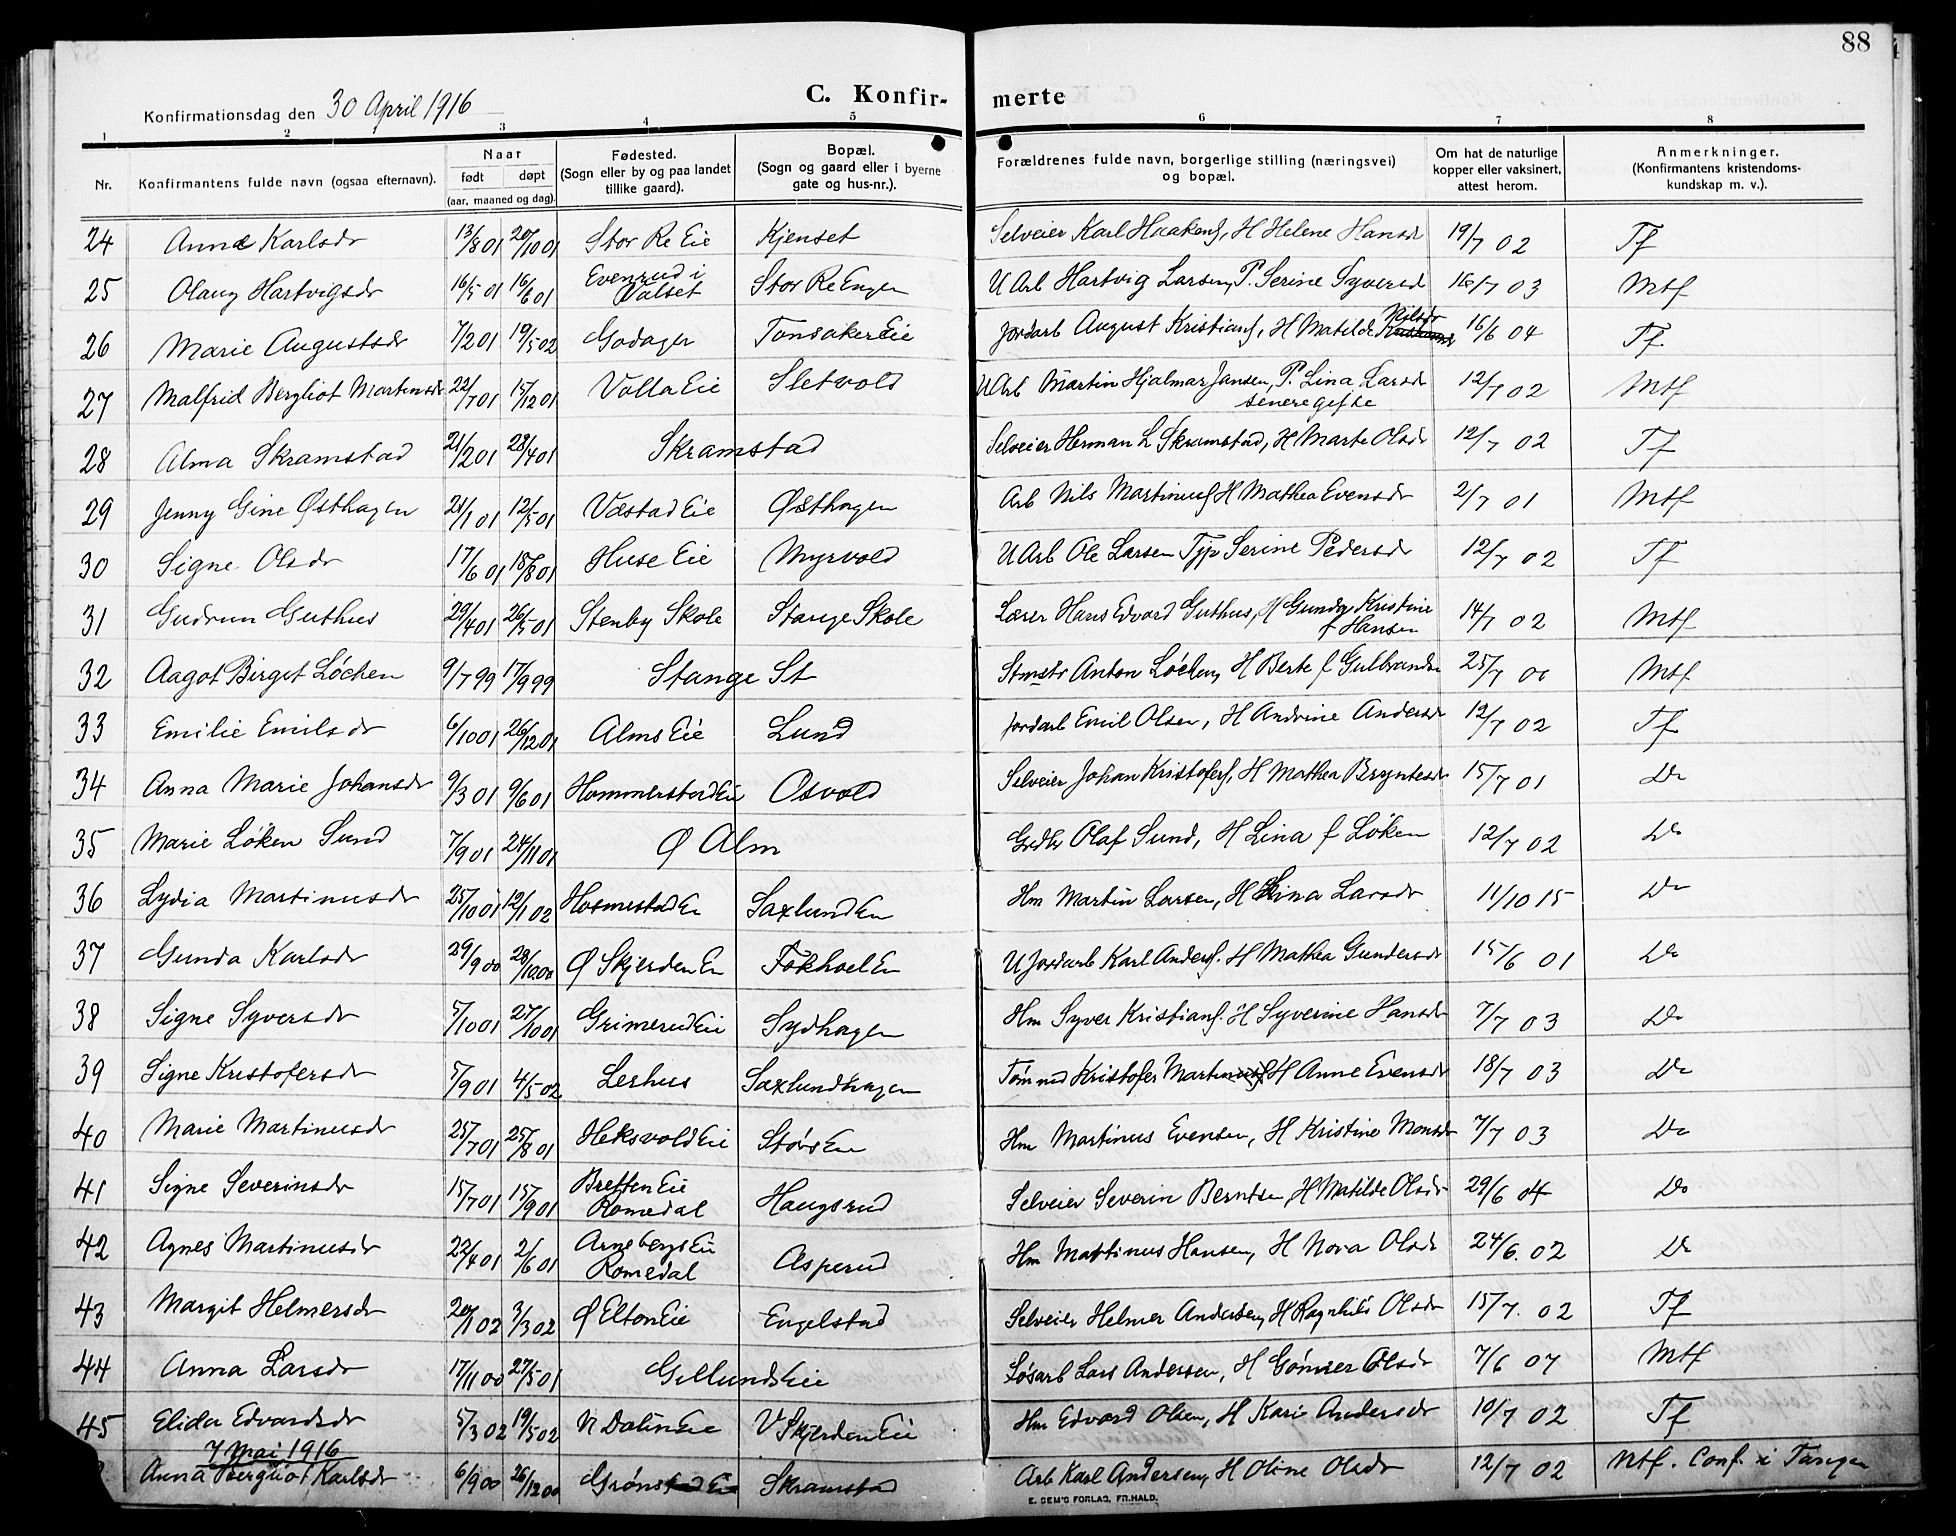 88
Konfirmationsdag den 30 April 1916
C. Konfir-merte
1 2 3 4 5 6 7 8
Nr. Konfirmantens fulde navn (ogsaa efternavn). Naar født døpt (aar, maaned og dag). Fødested. (Sogn eller by og paa landet tillike gaard). Bopæl. (Sogn og gaard eller i byerne gate og hus-nr.). Forældrenes fulde navn, borgerlige stilling (næringsvei) og bopæl. Om hat de naturlige kopper eller vaksinert, attest herom. Anmerkninger. (Konfirmantens kristendoms-kundskap m. v.).
24 Anna Karlsdr 13/8 01 20/10 01 Stor Re Eie Kjenset Selveier Karl Haakens, H Helene Hansdr 19/7 02 Tf
25 Olaug Hartvigsdr 16/5 01 16/6 01 Evenrud i Valset Stor Re Engen U Arb Hartvig Larsen, P. Serine Syversdr 16/7 03 Mtf
26 Marie Augustsdr 7/2 01 19/5 02 Godager Tonsaker Eie Jordarb August Kristians, H Matilde Nilsdr 16/6 04 Tf
27 Malfrid Bergliot Martinsdr 22/7 01 15/12 01 Volla Eie Sletvold U Arb Martin Hjalmar Jansen, P. Lina Larsdr senere gifte 12/7 02 Mtf
28 Alma Skramstad 21/2 01 28/4 01 Skramstad Selveier Herman L Skramstad, H Marte Olsdr 12/7 02 Tf
29 Jenny Gine Østhagen 21/1 01 12/5 01 Væstad Eie Østhagen Arb Nils Martinus H Mathea Evensdr 2/7 01 Mtf
30 Signe Olsdr 17/6 01 18/8 01 Huse Eie Myrvold U Arb Ole Larsen Typ Serine Pedersdr 12/7 02 Tf
31 Gudrun Guthus 29/4 01 26/5 01 Stenby Skole Stange Skole Lærer Hans Edvard Guthus, H Gunda Kristine f Hansen 14/7 02 Mtf
32 Aagot Birget Løchen 9/7 99 17/9 99 Stange St Stmstr Anton Løchen, H Berte f Gulbrandsn 25/7 00 Mtf
33 Emilie Emilsdr 6/10 01 26/12 01 Alms Eie Lund Jordarb Emil Olsen, H Andrine Andersdr 12/7 02 Tf
34 Anna Marie Johansdr 9/3 01 9/6 01 Hommerstad Ei Osvold Selveier Johan Kristofers, H Mathea Bryntesdr 15/7 01 Do
35 Marie Løken Sund 7/9 01 24/11 01 Ø Alm Grdbr Olaf Sund, H Lina f Løken 12/7 02 Do
36 Lydia Martinusdr 25/10 01 12/1 02 Hosmestad Ei Saxlund Ei Hm Martin Larsen, H Lina Larsdr 11/10 15 Do
37 Gunda Karlsdr 29/9 00 28/10 00 Ø Skjerden Ei Fokhol Ei U Jordarb Karl Anders. H Mathea Gundersdr 15/6 01 Do
38 Signe Syversdr 5/10 01 27/10 01 Grimerud Eie Sydhagen Hm Syver Kristians. H Syverine Hansdr 7/7 03 Do
39 Signe Kristofersdr 5/9 01 4/5 02 Lerhus Saxlundhagen Tømmd Kristofer Martinus H Anne Evensdr 18/7 03 Do
40 Marie Martinusdr 25/7 01 25/8 01 Heksvold Eie Störs Ei Hm Martinus Evensen, H Kristine Monsdr 7/7 03 Do
41 Signe Severinsdr 15/7 01 15/9 01 Bretten Eie Romedal Haugsrud Selveier Severin Berntsen, H Matilde Olsdr 29/6 04 Do
42 Agnes Martinusdr 22/4 01 2/6 01 Arnebergs Ei Romedal Asperud Hm Martinus Hansen, H Nora Olsdr 24/6. 02 Do
43 Margit Helmersdr 20/1 02 3/3 02 Ø Elton Eie Engelstad Selveier Helmer Andersen, H Ragnhild Olsdr 15/7. 02 Tf
44 Anna Larsdr 17/11 00 27/5 01 Gillunds Eie Løsarb Lars Andersen, H Gønner Olsdr 7/6 07 Mtf
45 Elida Edvardsdr 5/3 02 19/5 02 N Dalin Eie V Skjerden Eie Hm Edvard Olsen, H Kari Andersdr 10/7 02 Tf
7 Mai 1916
Anna Bergliot Karlsdr 6/9 00 26/12 00 Grønstad Eie Skramstad Arb Karl Andersen, H Oline Olsdr 12/7 02 Mtf. Conf. i Tangen
E. SEM'S FORLAG, FR.HALD.